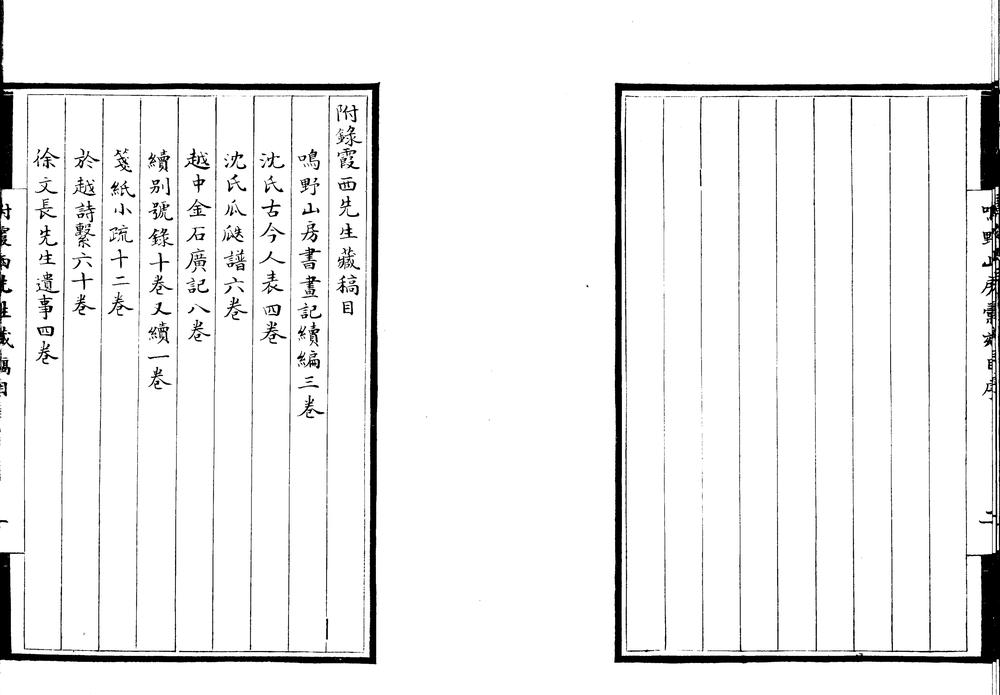 鳴野山房
二
附錄霞西先生藏稿目
鳴野山房書畫記續編三卷
沈氏古今人表四卷
沈氏瓜瓞譜六卷
越中金石廣記八卷
續別號錄十卷又續一卷
箋紙小疏十二卷
於越詩繫六十卷
徐文長先生遺事四卷
附霞西先生藏稿目
一